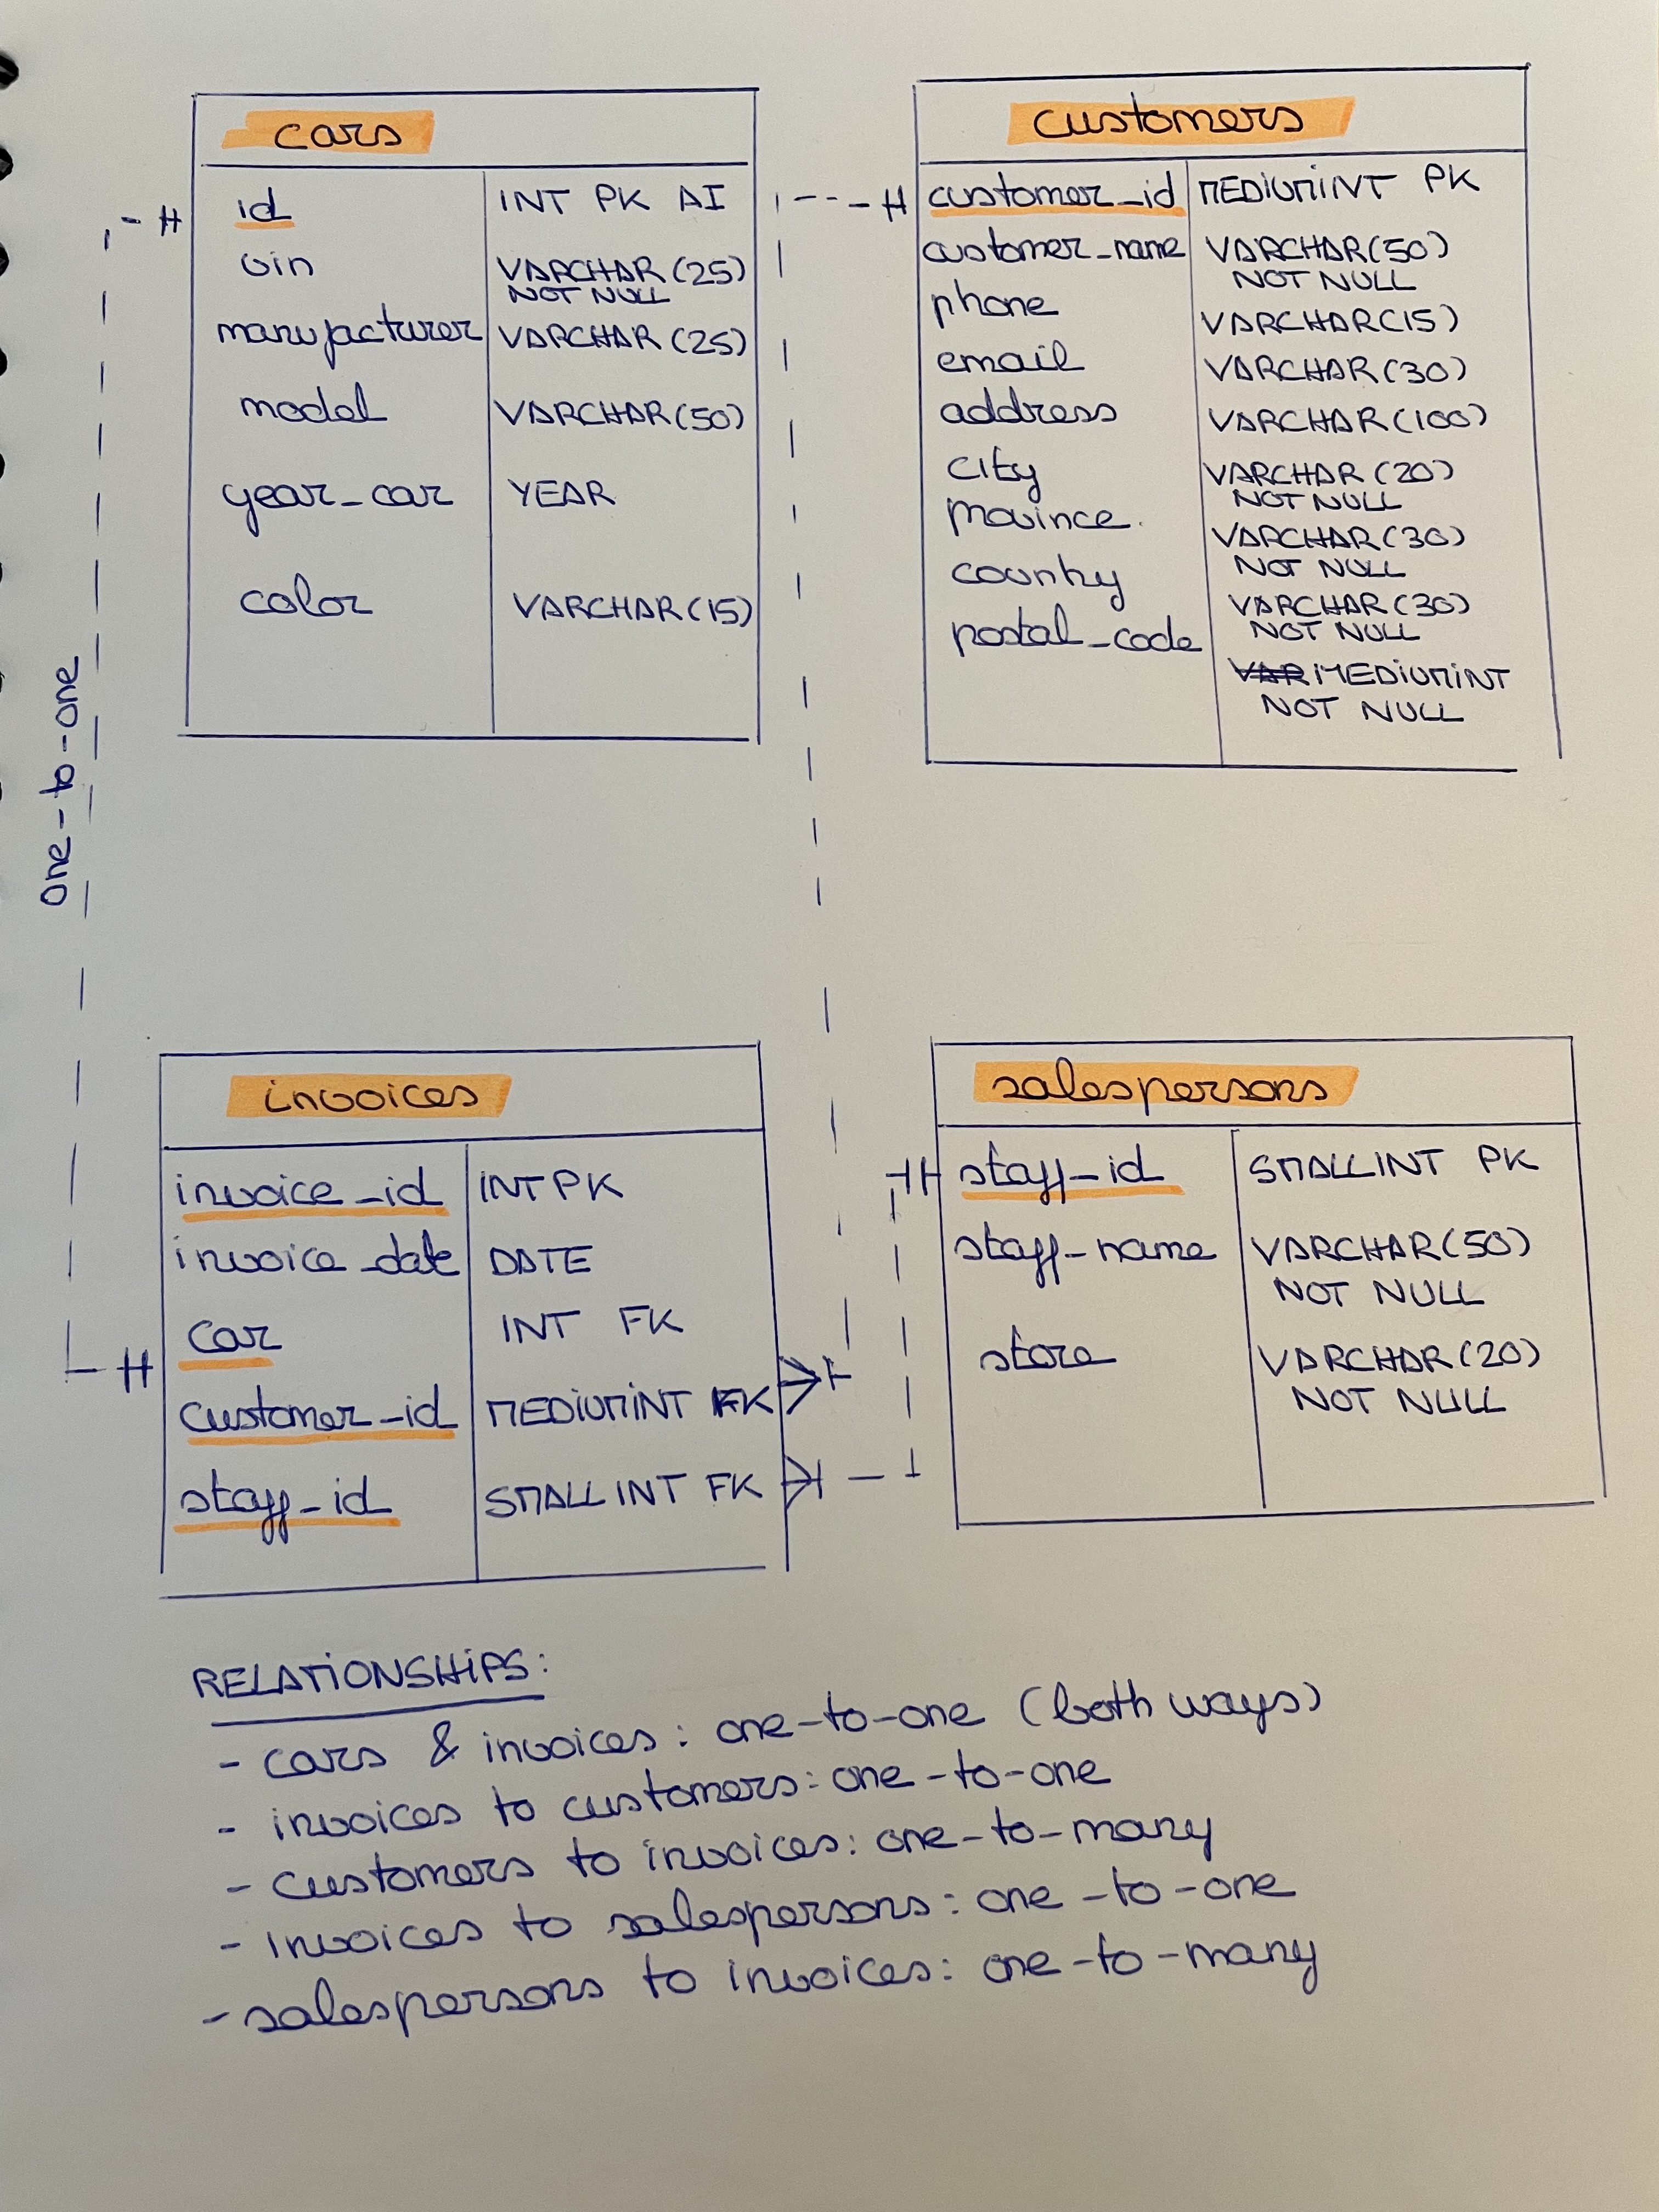 cars
id INT PK AI
vin VARCHAR (25)
NOT NULL
manufacturer VARCHAR (25)
model VARCHAR (50)
year_car YEAR
color VARCHAR (15)
customers
customer_id MEDIUMINT PK
customer_name VARCHAR (50)
NOT NULL
phone VARCHAR (15)
email VARCHAR (30)
address VARCHAR (100)
city VARCHAR (20)
NOT NULL
province VARCHAR (30)
NOT NULL
country VARCHAR (30)
NOT NULL
postal_code VAR MEDIUMINT
NOT NULL
one-to-one
invoices
invoice_id INT PK
invoice_date DATE
car INT FK
customer_id MEDIUMINT FK
staff_id SMALLINT FK
salespersons
staff_id SMALLINT PK
staff_name VARCHAR (50)
NOT NULL
store VARCHAR (20)
NOT NULL
RELATIONSHIPS:
- cars & invoices: one-to-one (both ways)
- invoices to customers: one-to-one
- customers to invoices: one-to-many
- invoices to salespersons: one-to-one
- salespersons to invoices: one-to-many